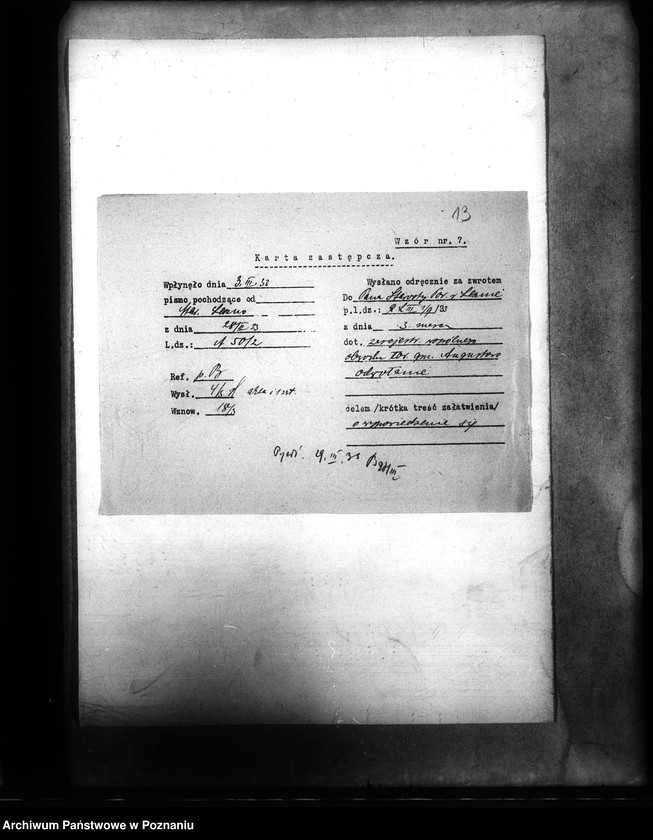 13
Wzór nr. 7.
Karta zastępcza.
Wpłynęło dnia 3.III.33
pismo pochodzące od
Star. Leszno
z dnia 28/II 33
L.dz.: A 50/2
Ref. p. B
Wysł. 4/3
Wznow. 18/3
Wysłano odręcznie za zwrotem
Do Pana Starosty Pow. w Lesznie
p.l.dz.: 33
z dnia 3. marca
dot. zarejestr. wspólnego
obwodu łow. gm. Augustowo
odwołanie
celem /krótka treść załatwienia/
o wypowiedzenie się
29.III.33
Archiwum Państwowe w Poznaniu